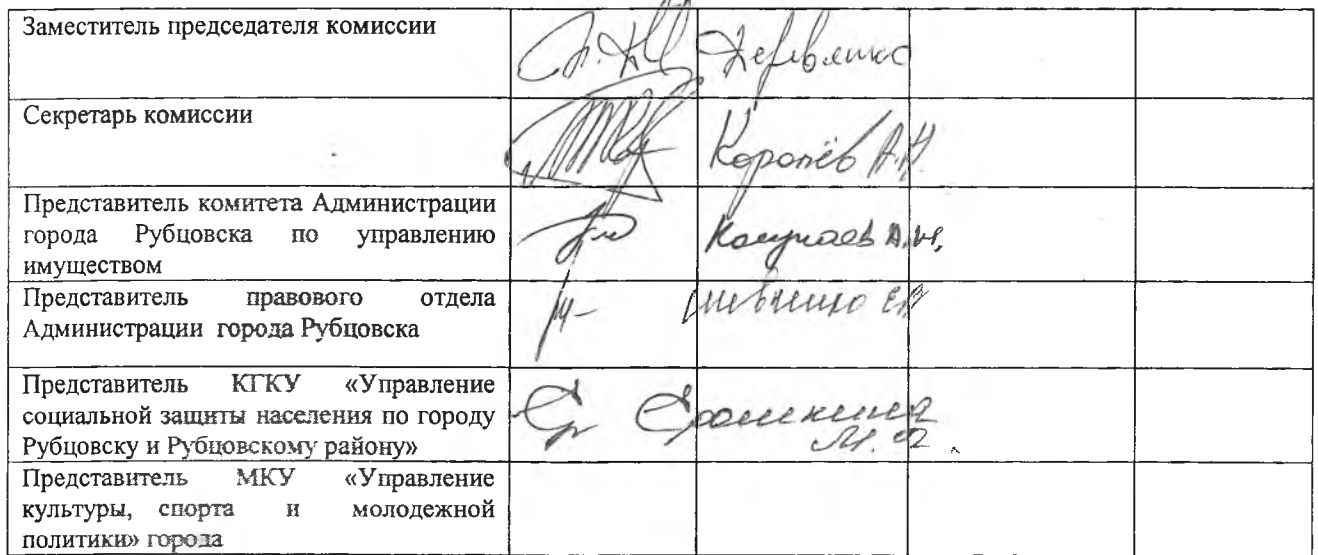 Заместитель председателя комиссии
Деревянко
Секретарь комиссии
Коропёв А.Н.
Представитель комитета Администрации
города Рубцовска по управлению
имуществом
Колупаев А.Н.
Представитель правового отдела
Администрации города Рубцовска
Шевченко Е.В
Представитель КГКУ «Управление
социальной защиты населения по городу
Рубцовску и Рубцовскому району»
Ерошкина
М.Ф.
Представитель МКУ «Управление
культуры, спорта и молодежной
политики» города